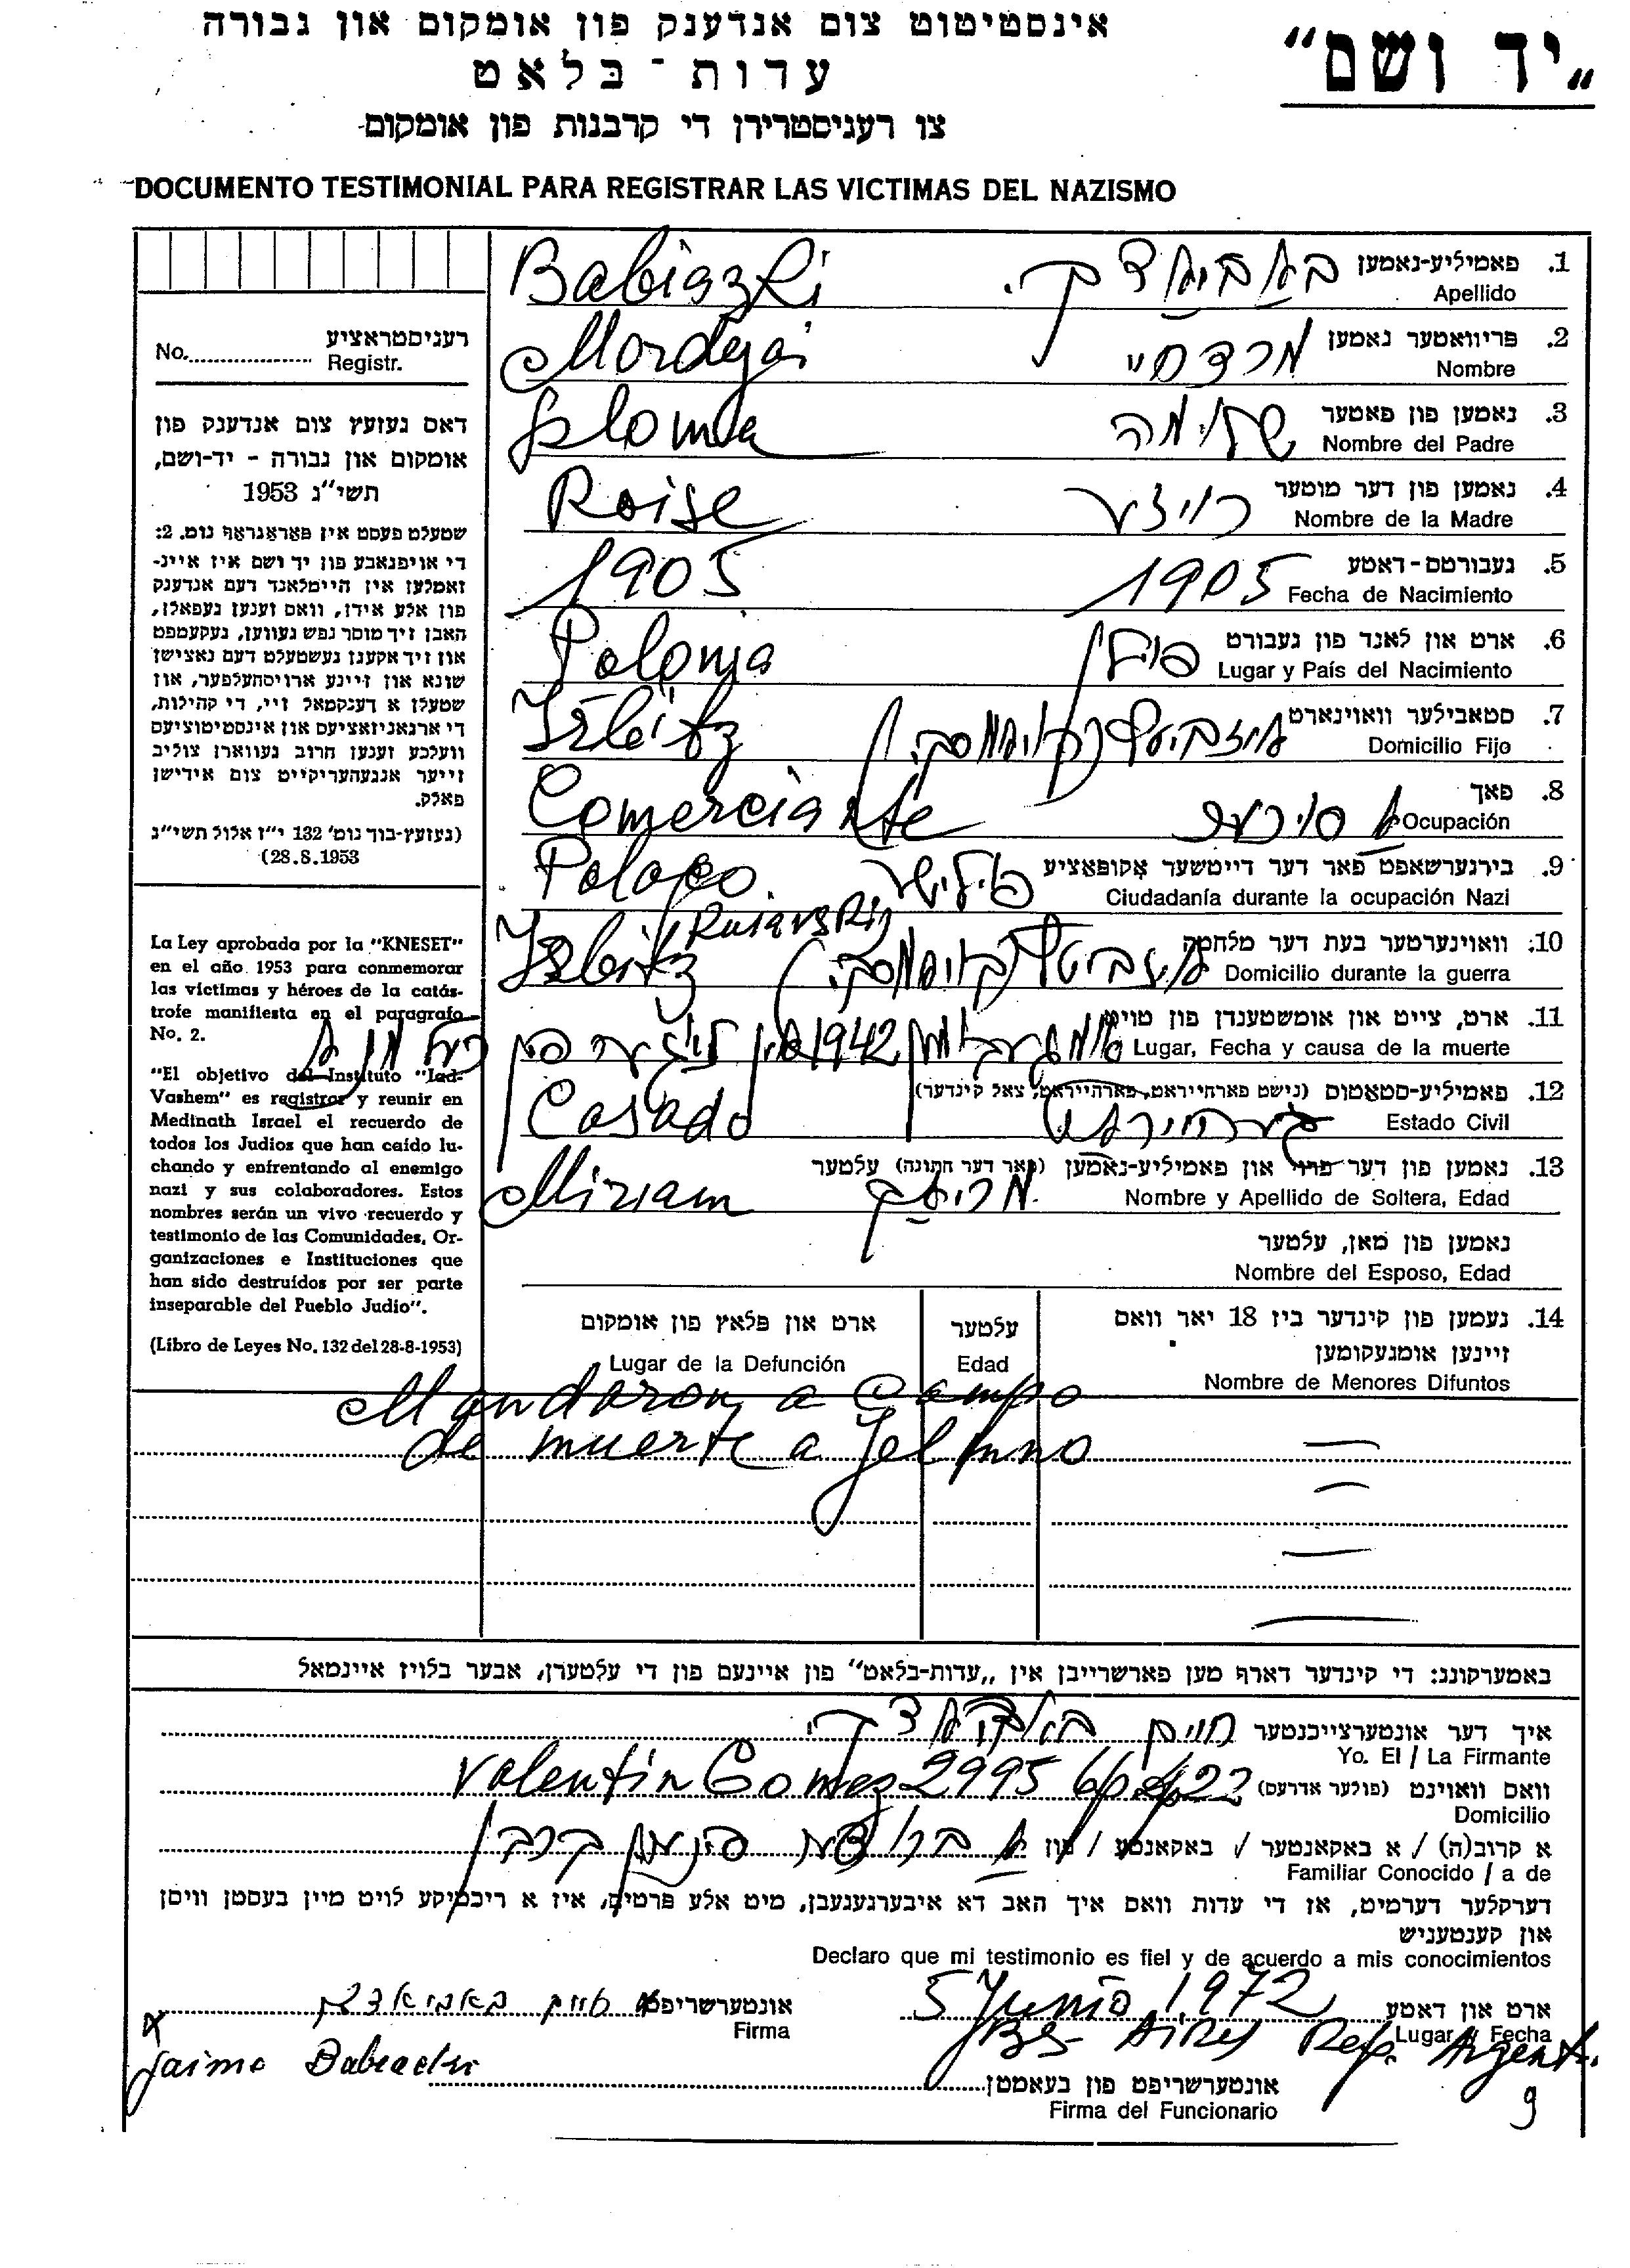 אינסטיטוט צום אנדענק פון אומקום און גבורה
„יד ושם“
עדות-בלאט
צו רעגיסטרירן די קרבנות פון אומקום
DOCUMENTO TESTIMONIAL PARA REGISTRAR LAS VICTIMAS DEL NAZISMO
רעגיסטראציע
No. Registr.
דאס געזעץ צום אנדענק פון
אומקום און גבורה - יד-ושם,
תשי"ג 1953
שטעלט פעסט אין פאראגראף נומ. 2:
די אויפגאבע פון יד ושם איז איינ-
זאמלען אין היימלאנד דעם אנדענק
פון אלע אידן, וואס זענען געפאלן,
האבן זיך מוסר נפש געווען, געקעמפט
און זיך אקעגן געשטעלט דעם נאצישן
שונא און זיינע ארויסהעלפער, און
שטעלן א דענקמאל זיי, די קהילות,
די ארגאניזאציעס און אינסטיטוציעס
וועלכע זענען חרוב געווארן צוליב
זייער אנגעהעריקייט צום אידישן
פאלק.
(געזעץ-בוך נומ' 132 י"ז אלול תשי"ג
28.8.1953)
La Ley aprobada por la "KNESET"
en el año 1953 para conmemorar
las víctimas y héroes de la catás-
trofe manifiesta en el paragrafo
No. 2.
"El objetivo del Instituto "Iad-
Vashem" es registrar y reunir en
Medinath Israel el recuerdo de
todos los Judios que han caído lu-
chando y enfrentando al enemigo
nazi y sus colaboradores. Estos
nombres serán un vivo recuerdo y
testimonio de las Comunidades, Or-
ganizaciones e Instituciones que
han sido destruídos por ser parte
inseparable del Pueblo Judio".
(Libro de Leyes No. 132 del 28-8-1953)
1. פאמיליע-נאמען
Apellido
Babiazki באביאצקי
2. פריוואטער נאמען
Nombre
Mordejai מרדחיי
3. נאמען פון פאטער
Nombre del Padre
Sloma שלומה
4. נאמען פון דער מוטער
Nombre de la Madre
Roise רויזע
5. געבורטס-דאטע
Fecha de Nacimiento
1905 1905
6. ארט און לאנד פון געבורט
Lugar y País del Nacimiento
Polonia פוילן
7. סטאבילער וואוינארט
Domicilio Fijo
Isbitz
8. פאך
Ocupación
Comerciante א סוחער
9. בירגערשאפט פאר דער דייטשער אקופאציע
Ciudadanía durante la ocupación Nazi
Polaco פוילישער
10. וואוינערטער בעת דער מלחמה
Domicilio durante la guerra
Isbitz
11. ארט, צייט און אומשטענדן פון טויט
Lugar, Fecha y causa de la muerte
אומגעקומען 1942 אין
12. פאמיליע-סטאטוס (נישט פארהייראט, פארהייראט, צאל קינדער)
Estado Civil
Casado
13. נאמען פון דער פרוי און פאמיליע-נאמען (פאר דער חתונה) עלטער
Nombre y Apellido de Soltera, Edad
Miriam מרים
נאמען פון מאן, עלטער
Nombre del Esposo, Edad
14. נעמען פון קינדער ביז 18 יאר וואס
זיינען אומגעקומען
Nombre de Menores Difuntos
עלטער
Edad
ארט און פלאץ פון אומקום
Lugar de la Defunción
Mandaron a Campo
de muerte a Jelmno
באמערקונג: די קינדער דארף מען פארשרייבן אין „עדות-בלאט“ פון איינעם פון די עלטערן, אבער בלויז איינמאל
איך דער אונטערצייכנטער חיים באביאצקי
Yo. El / La Firmante
וואס וואוינט (פולער אדרעס)
Valentin Gomes 2995
Domicilio
א קרוב(ה) / א באקאנטער / באקאנטע / פון
Familiar Conocido / a de
דערקלער דערמיט, אז די עדות וואס איך האב דא איבערגעגעבן, מיט אלע פרטים, איז א ריכטיקע לויט מיין בעסטן וויסן
און קענטעניש
Declaro que mi testimonio es fiel y de acuerdo a mis conocimientos
ארט און דאטע 5 Junio 1972
Lugar y Fecha Bs Aires Rep. Argent.
אונטערשריפט חיים באביאצקי
Firma
Jaime
אונטערשריפט פון בעאמטן
Firma del Funcionario
9